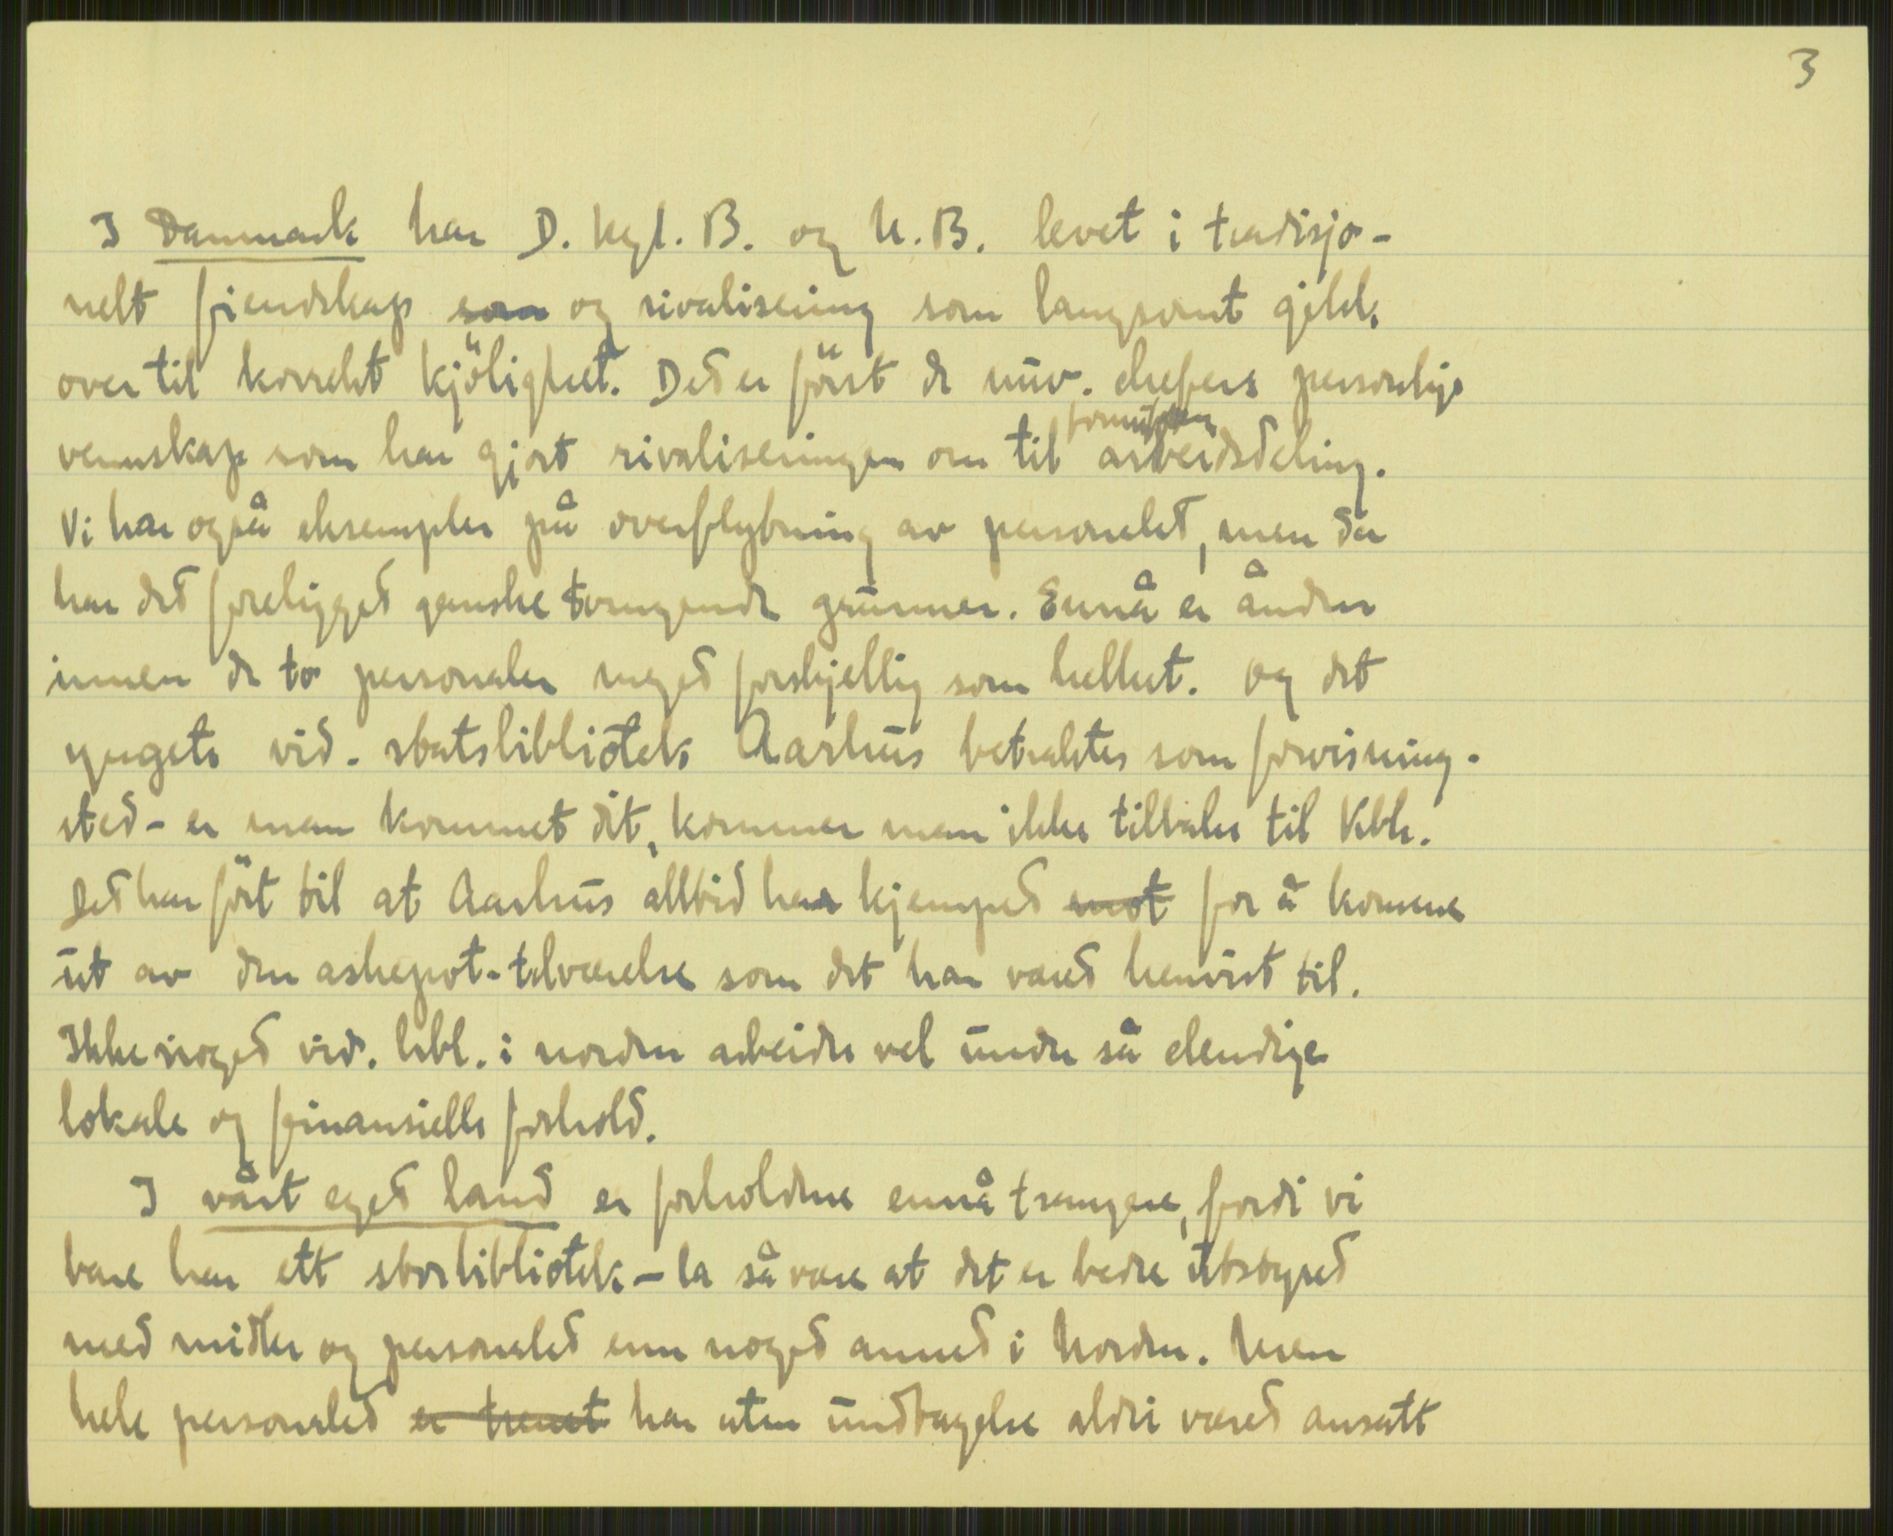 3
I Danmark har D. kgl. B. og U.B. levet i tradisjo-
nelt fiendskap som og rivalisering som langsomt gikk
over til korrekt kjölighet. Det er först de nuv. chefers personlige
vennskap som har gjort rivaliseringen om til fornuftig arbeidsdeling.
Vi har også eksempler på overflytning av personalet, men da
har det foreligget ganske tvingende grunner. Ennå er ånden
innen de to personaler meget forskjellig som helhet. Og det
yngste vid. statsbibliotek Aarhus betraktes som forvisning-
sted - er man kommet dit, kommer man ikke tilbake til Kbh.
Det har fört til at Aarhus alltid har kjempet mot for å komme
ut av den askepot-tilværelse som det har været henvist til.
Ikke noget vid. bibl. i norden arbeider vel under så elendige
lokale og finansielle forhold.
I vårt eget land er forholdene ennå trangere, fordi vi
bare har ett storbibliotek - la så være at det er bedre utstyret
med midler og personalet enn noget annet i Norden. Men
hele personalet er trenet har uten undtagelse aldri været ansatt